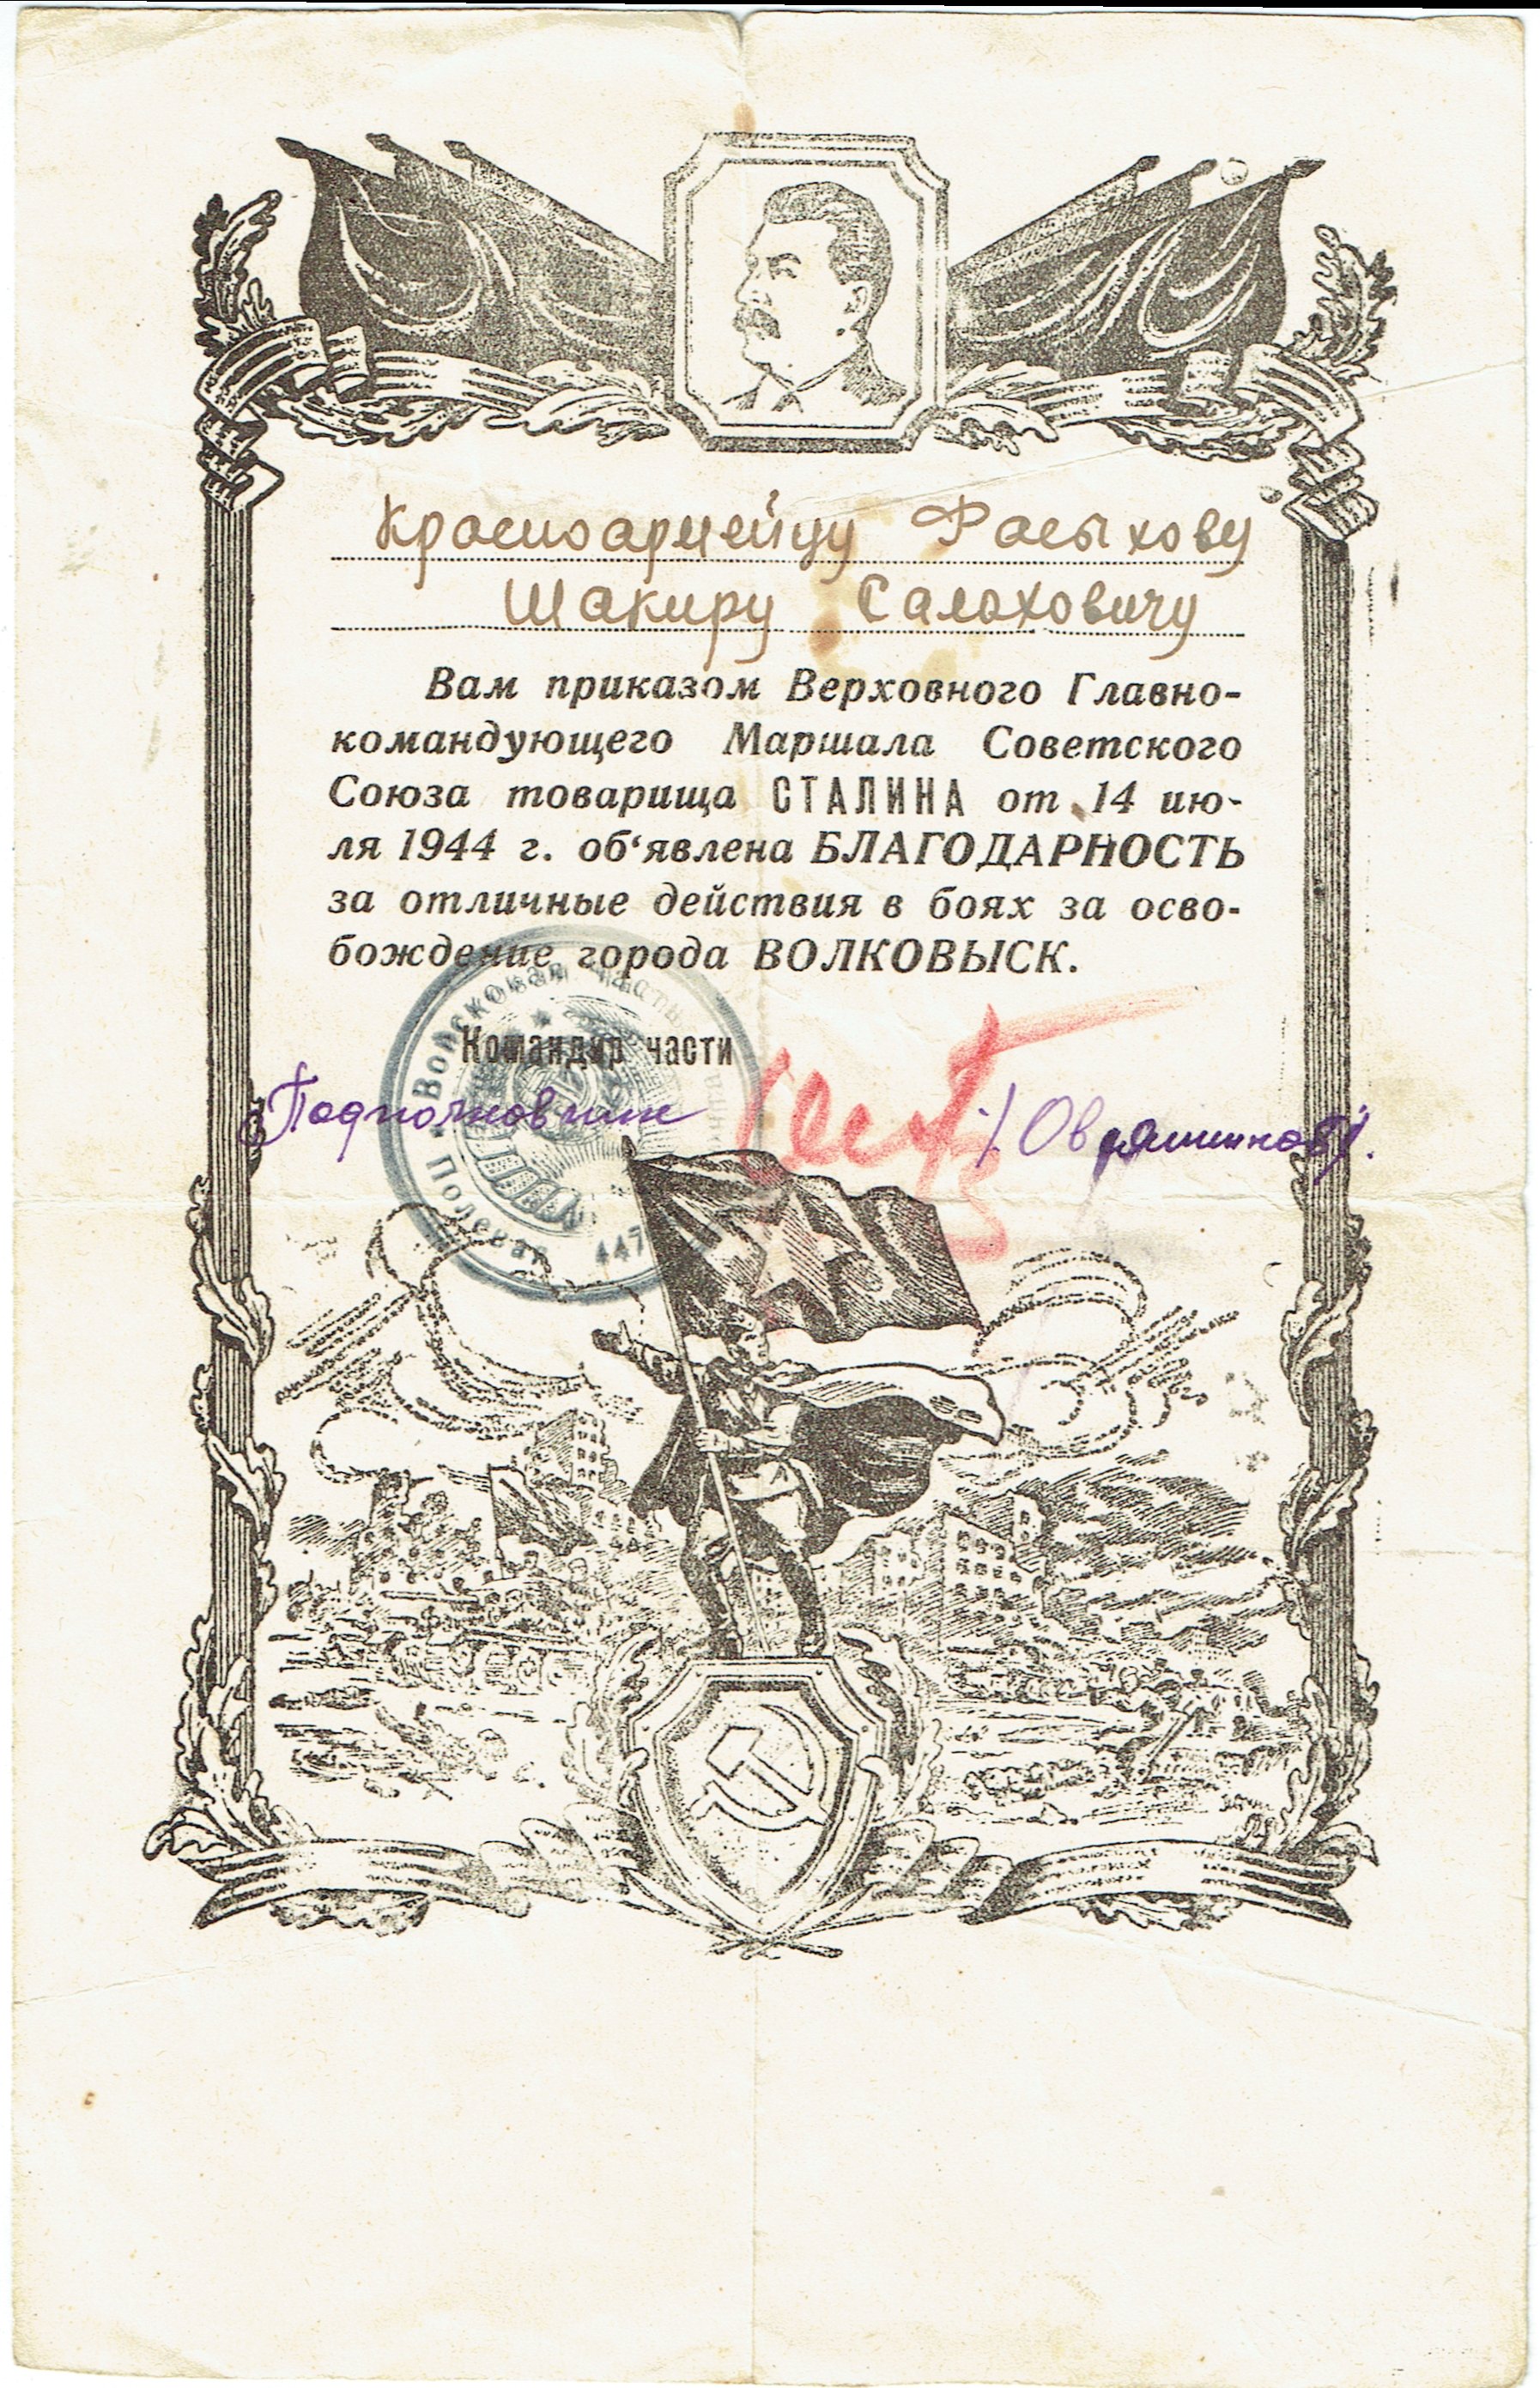 Красноармейцу Фасыхову
Шакиру Салаховичу
Вам приказом Верховного Главно-
командующего Маршала Советского
Союза товарища СТАЛИНА от 14 ию-
ля 1944 г. об‘явлена БЛАГОДАРНОСТЬ
за отличные действия в боях за осво-
бождение города ВОЛКОВЫСК.
Войсковая часть
Командир части
Подполковник /Овсянников/.
Полевая 447